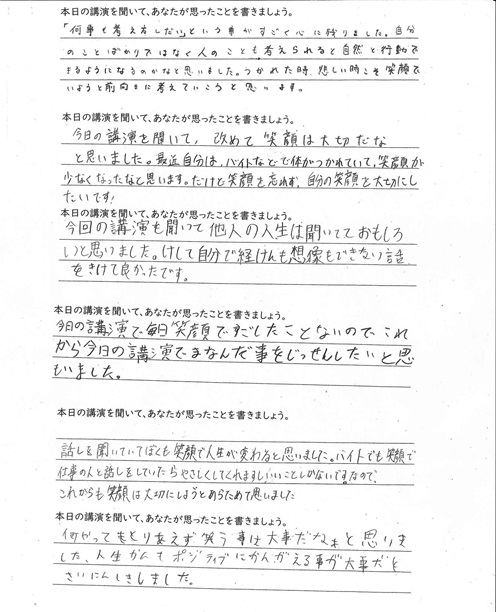 本日の講演を聞いて、あなたが思ったことを書きましょう。
「何事も考え方しだい」という事がすごく心に残りました。自分
のことばかりではなく人のことも考えられると自然と行動で
きるようになるのかなと思いました。つかれた時、悲しい時こそ笑顔で
いようと前向きに考えていこうと思います。
本日の講演を聞いて、あなたが思ったことを書きましょう。
今日の講演を聞いて、改めて笑顔は大切だな
と思いました。最近自分は、バイトなどで体がつかれていて、笑顔が
少なくなったなと思います。だけど笑顔を忘れず、自分の笑顔を大切にし
たいです!
本日の講演を聞いて、あなたが思ったことを書きましょう。
今回の講演も聞いて他人の人生は聞いてておもしろ
いと思いました。けして自分で経けんも想像もできない話
をきけて良かったです。
本日の講演を聞いて、あなたが思ったことを書きましょう。
今日の講演で毎日笑顔ですごしたことないので、これ
から今日の講演でまなんだ事をじっせんしたいと思
いました。
本日の講演を聞いて、あなたが思ったことを書きましょう。
話しを聞いていてぼくも笑顔で人生が変わると思いました。バイトでも笑顔で
仕事の人と話しをしていたらやさしくしてくれますしいいことしかないです。なので、
これからも笑顔は大切にしようとあらためて思いました
本日の講演を聞いて、あなたが思ったことを書きましょう。
何がってもとりあえず笑う事は大事だなぁと思いま
した、人生かんもポジティブにかんがえる事が大事だと
さいにんしきしました。